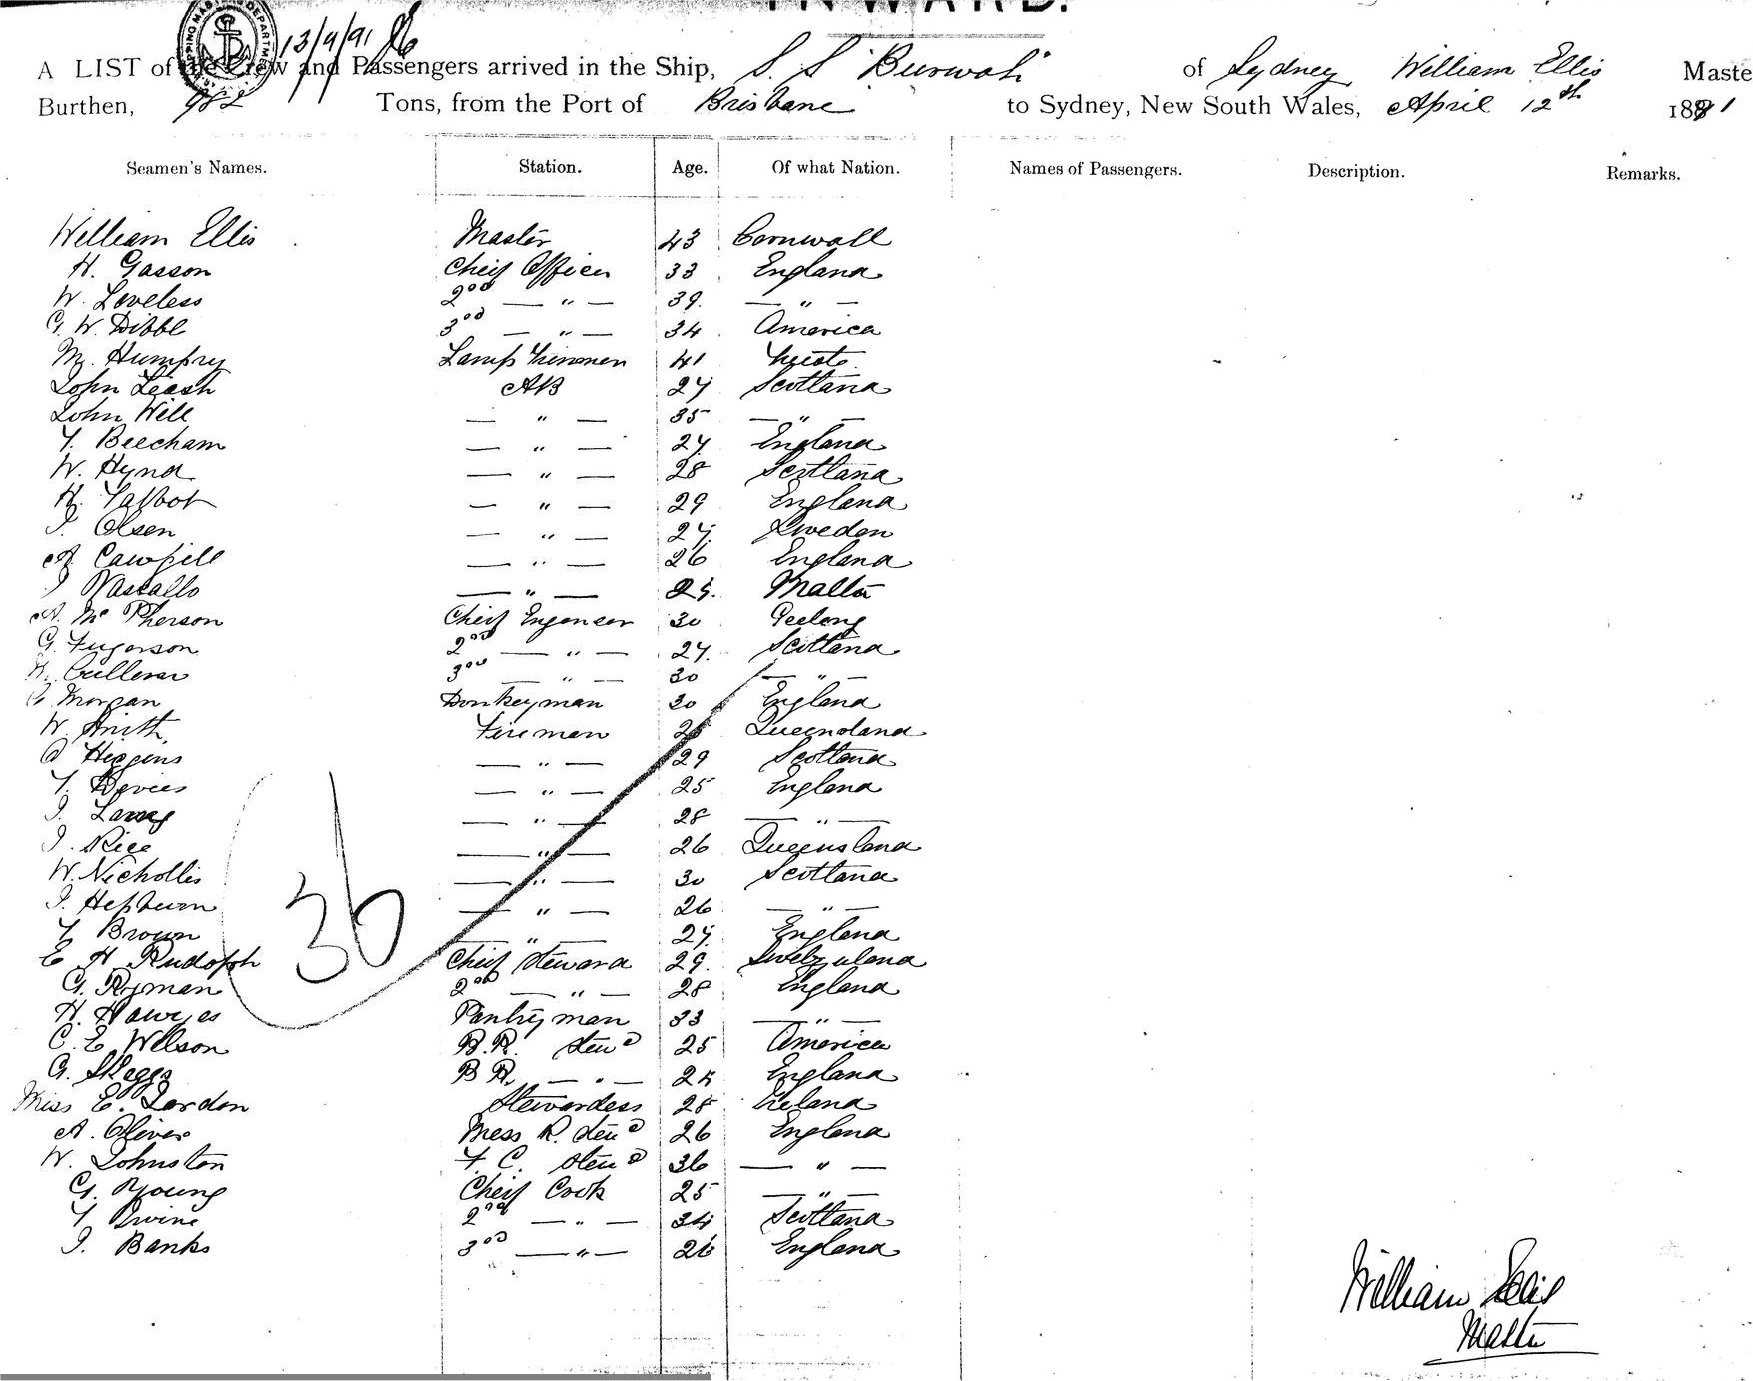 INWARD.
13/4/91
A LIST of the Crew and Passengers arrived in the Ship, S. S "Burwah" of Sydney William Ellis Maste
Burthen, 982 Tons, from the Port of Brisbane to Sydney, New South Wales, April 12th 1891
Seamen's Names. Station. Age. Of what Nation. Names of Passengers. Description. Remarks.
William Ellis Master 43 Cornwall
H. Gasson Cheif Officer 33 England
W. Loveless 2nd — " — 39. — " —
G. W. Dibbl 3rd — " — 34 America
Wm. Humpry Lamp Trimmer 41
John Leash AB 27 Scotland
John Well — " — 35 — " —
T. Beecham — " — 27. England
W. Hynd — " — 28 Scotland
H. Talbot — " — 29 England
J. Olsen — " — 27. Sweden
A. Cawgill — " — 26 England
J Vassallo — " — 25. Malta
A. Mc Pherson Cheif Engeneer 30 Geelong
G. Fugerson 2nd — " — 27. Scotland
Cullener 3rd — " — 30 — " —
Morgan Donkeyman 30 England
W. Smith Fireman Queensland
Higgins — " — 29 Scotland
T. Davies — " — 25 England
J. — " — 28 — " —
J. Rice — " — 26 Queensland
W. Nichollis — " — 30 Scotland
J. Hepburn — " — 26 — " —
T Brown — " — 27. England
E H Rudolph Cheif Steward 29.
G. Ryman 2nd — " — 28 England
H. Hawyes Pantryman 33 — " —
C. E Wilson B.R. Stewd 25 America
G. Skeggs B R. — " — 24 England
Miss E. Lordon Stewardess 28 Ireland
A. Oliver Mess R. Stewd 26 England
W. Johnston F. C. Stewd 36 — " —
G. Young Cheif Cook 25 — " —
T Irvine 2nd — " — 34 Scotland
J. Banks 3rd — " — 26 England
36
William Ellis
Master